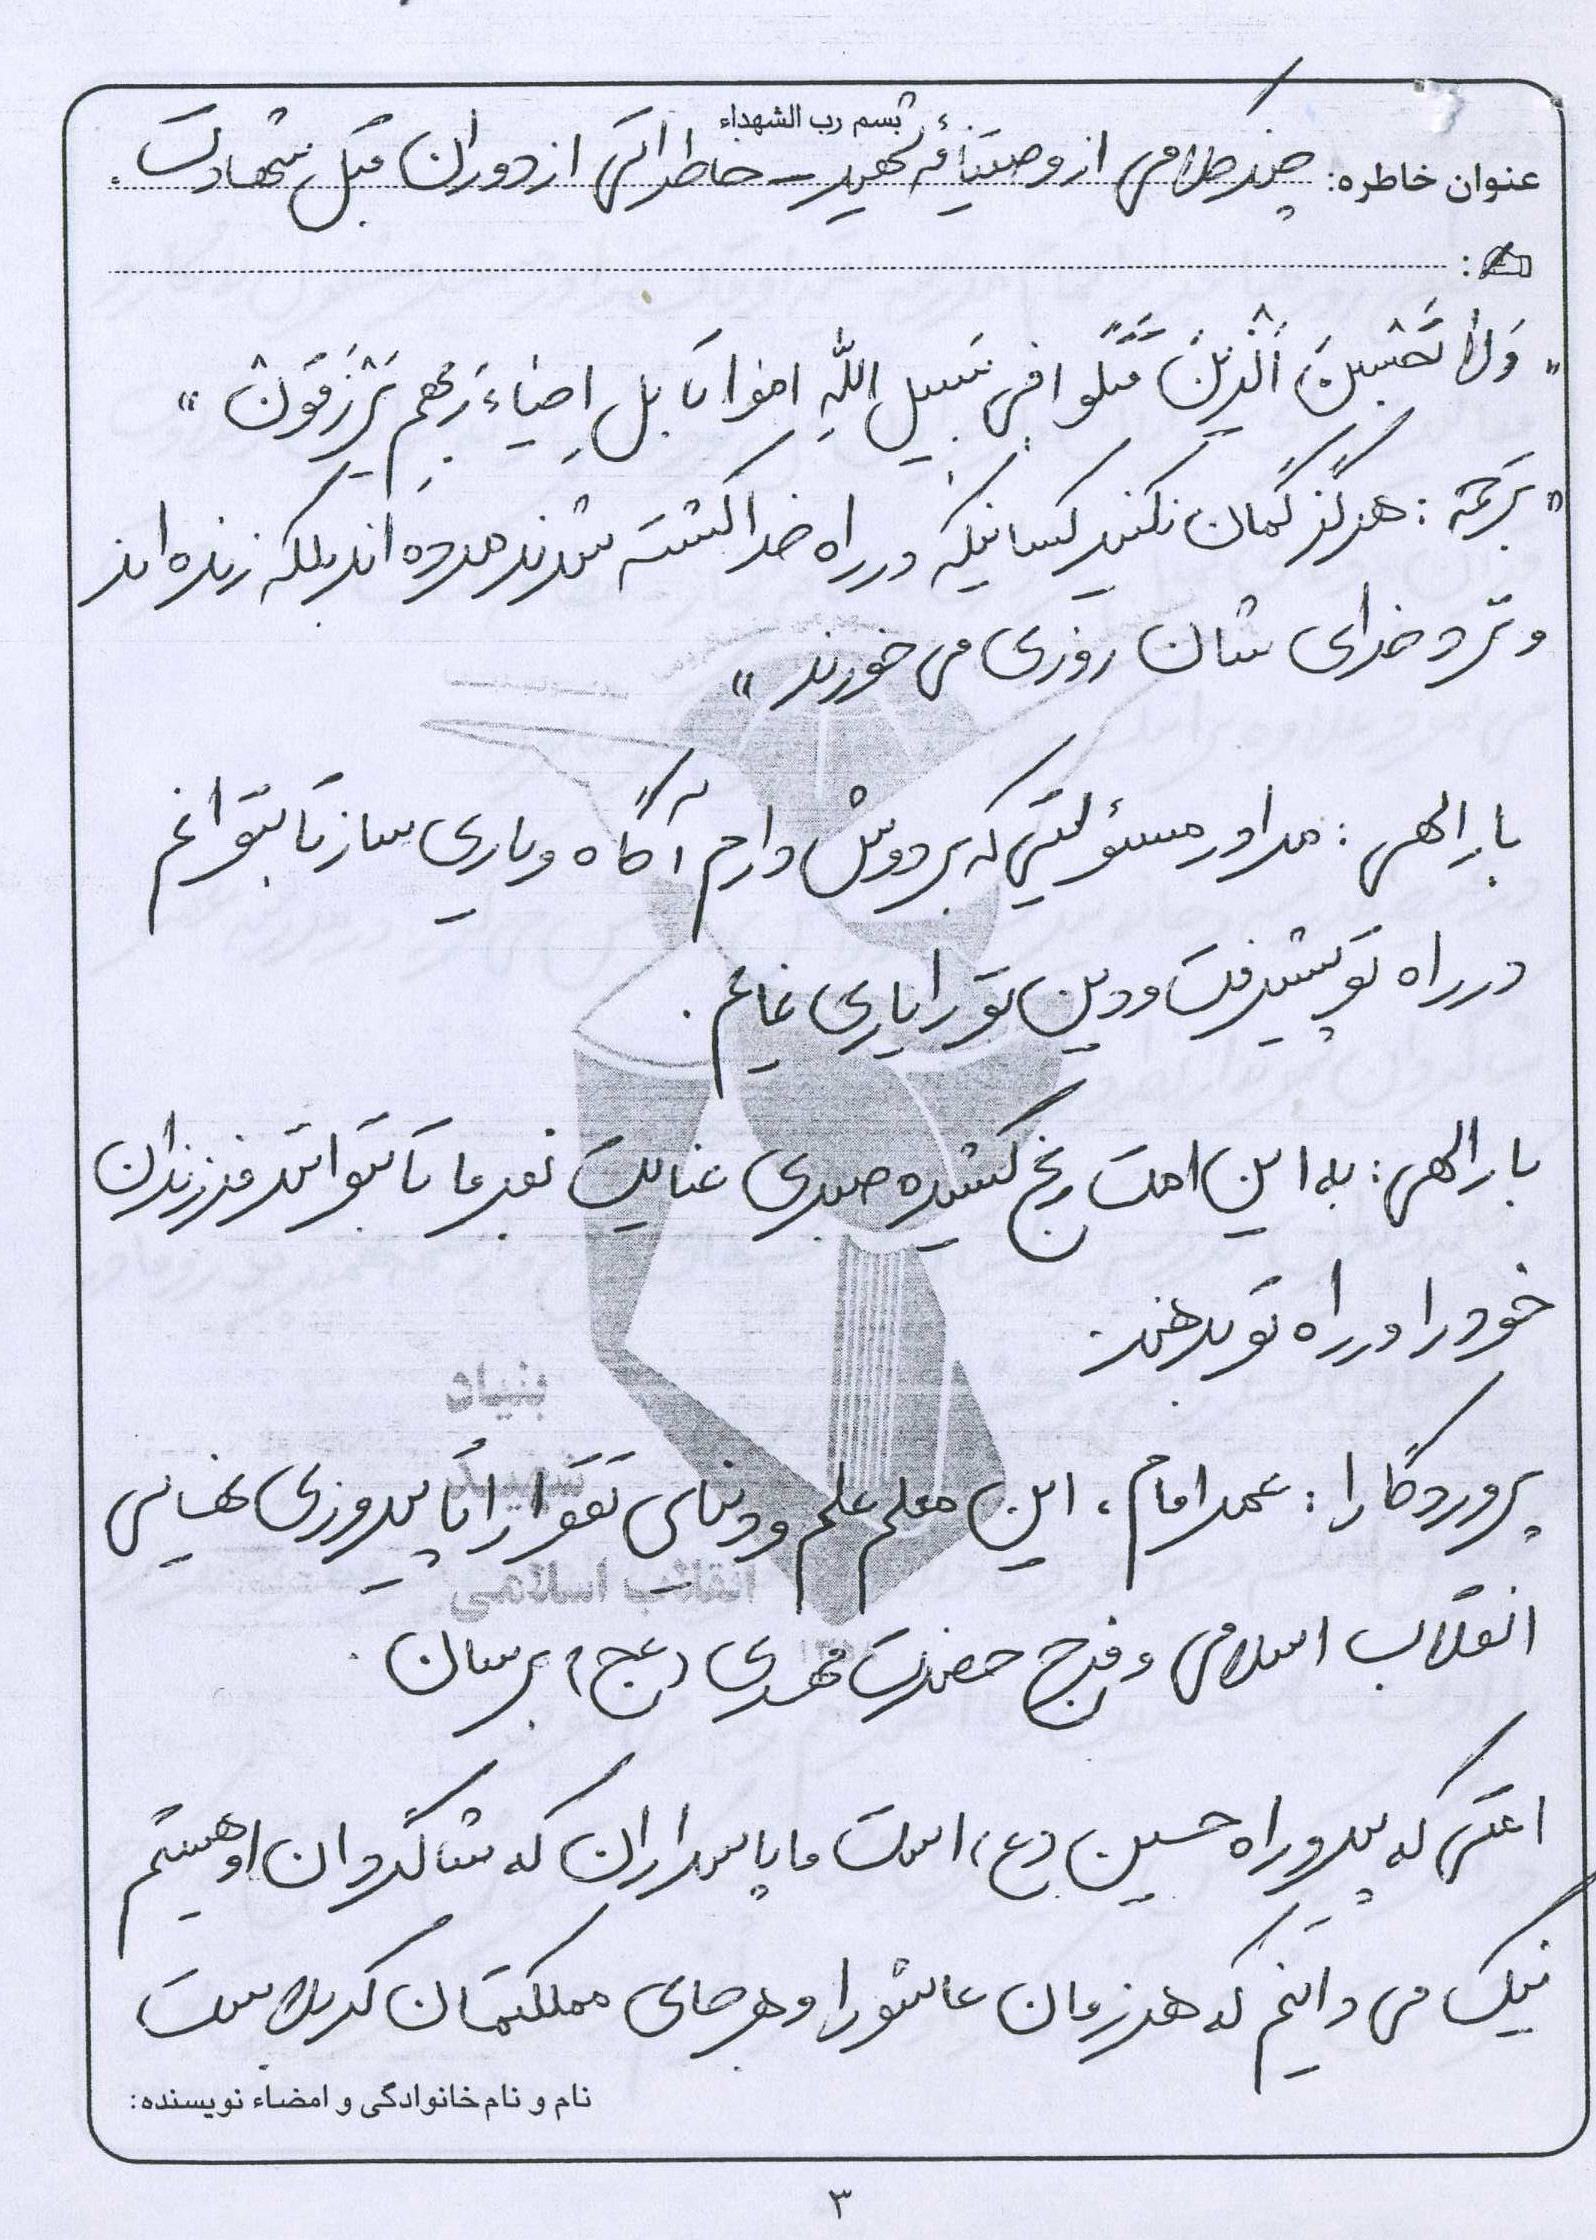 بسم رب الشهداء
عنوان خاطره: چند کلامی از وصیتنامه شهید – خاطراتی از دوران قبل شهادت.
:
" وَلا تَحْسَبَنَّ الَّذینَ قُتِلُوا فی سَبیلِ اللّٰهِ امواتا بل احیاءٌ رَبِّهِم یُرْزَقُونْ "
" ترجمه : هرگز گمان نکنید کسانیکه در راه خدا کشته شدند مرده اند بلکه زنده اند
و نزد خدای شان روزی می خورند "
بار الهی : مرا در مسئولیتی که بر دوش دارم آگاه و یاری ساز تا بتوانم
در راه تو پیشرفت و دین تو را یاری نمایم .
بار الهی : به این امت رنج کشیده صبری عنایت بفرما تا بتوانند فرزندان
خود را در راه تو بدهند .
پروردگارا : عمر امام ، این معلم علم و دنیای تقوا را تا پیروزی نهایی
انقلاب اسلامی و فرج حضرت مهدی (عج) برسان .
امتی که پیرو راه حسین (ع) است ما پاسداران که شاگردان او هستیم
نیک می دانیم که هر زمان عاشورا و هر جای مملکتمان کربلاست
بنیاد
شهید
انقلاب اسلامی
نام و نام خانوادگی و امضاء نویسنده:
۳